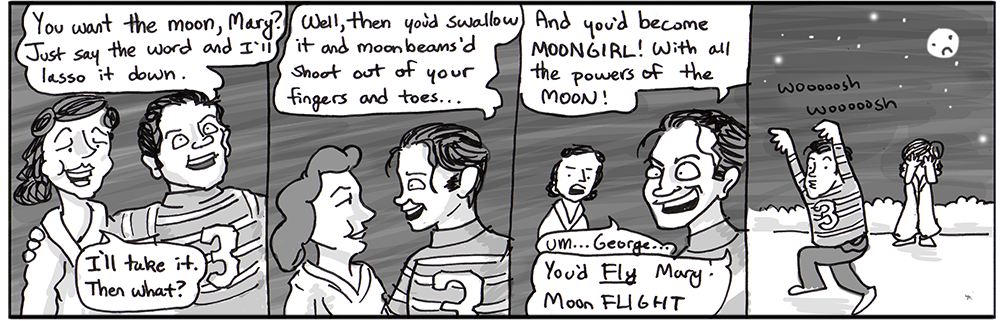 You want the moon, Mary?
Just say the word and I'll
lasso it down.
I'll take it.
Then what?
3
Well, then you'd swallow
it and moonbeams'd
shoot out of your
fingers and toes...
3
And you'd become
MOONGIRL! With all
the powers of the
MOON!
um... George...
You'd Fly Mary!
Moon FLIGHT
WOOOOOSH
WOOOOOSH
3